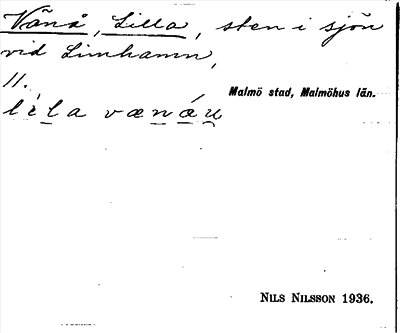 Vänå, Lilla, sten i sjön
vid Limhamn,
11.
Malmö stad, Malmöhus län.
lìla vænáu
Nils Nilsson 1936.